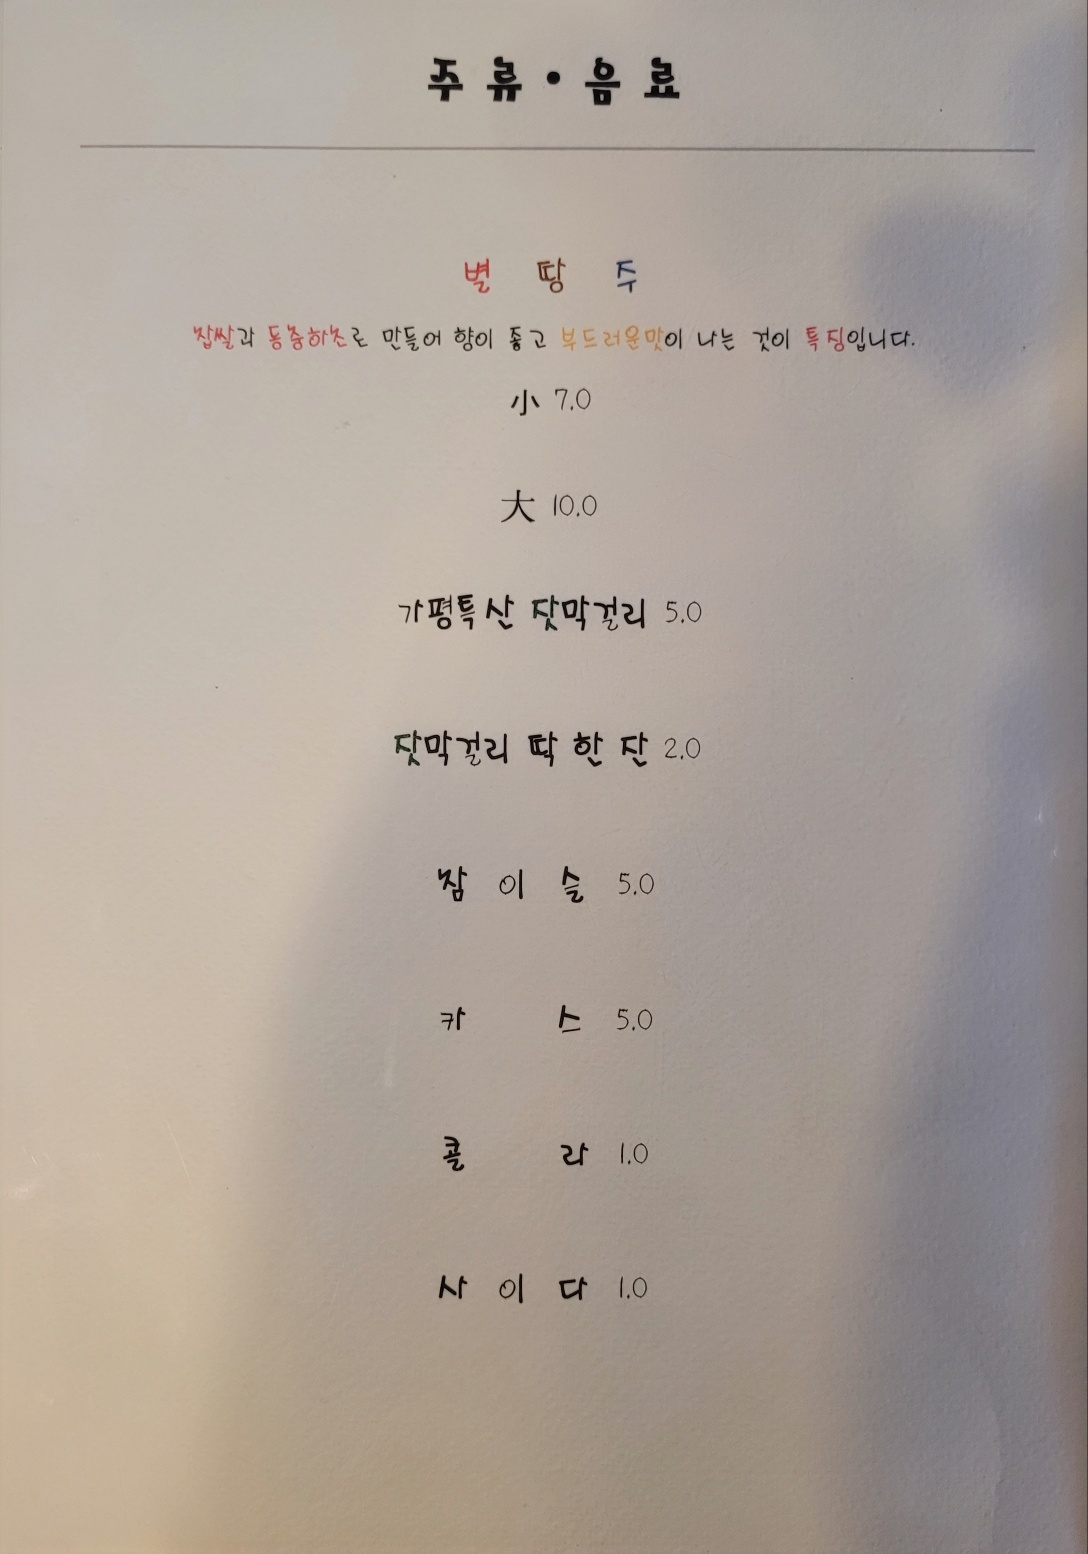 주류·음료
별땅주
찹쌀과 동충하초로 만들어 향이 좋고 부드러운맛이 나는 것이 특징입니다.
小 7.0
大 10.0
가평특산 잣막걸리 5.0
잣막걸리 딱 한 잔 2.0
참이슬 5.0
카스 5.0
콜라 1.0
사이다 1.0